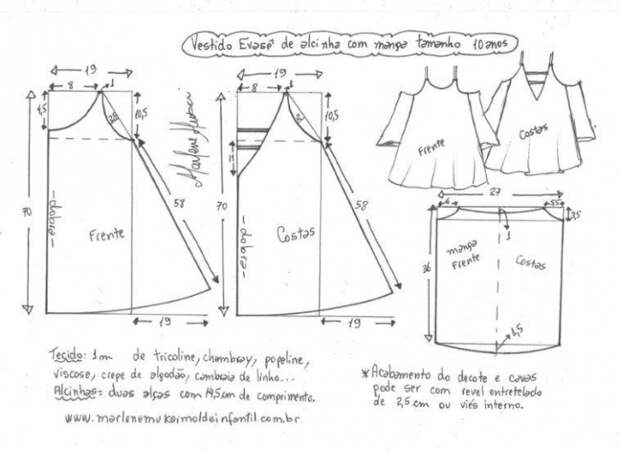 Vestido Evasê de alcinha com manga tamanho 10 anos
19
8
1
4,5
10,5
70
58
dobra
Frente
19
Marlene Mukai
19
8
1
10,5
11
70
58
dobra
Costas
19
Frente
Costas
27
6
5,5
3,5
1
36
manga
Frente
Costas
1,5
Tecido: 1m de tricoline, chambray, popeline,
viscose, crepe de algodão, cambraia de linho...
Alcinhas: duas alças com 14,5cm de comprimento.
www.marlenemukaimoldeinfantil.com.br
*Acabamento do decote e cavas
pode ser com revel entretelado
de 2,5 cm ou viés interno.